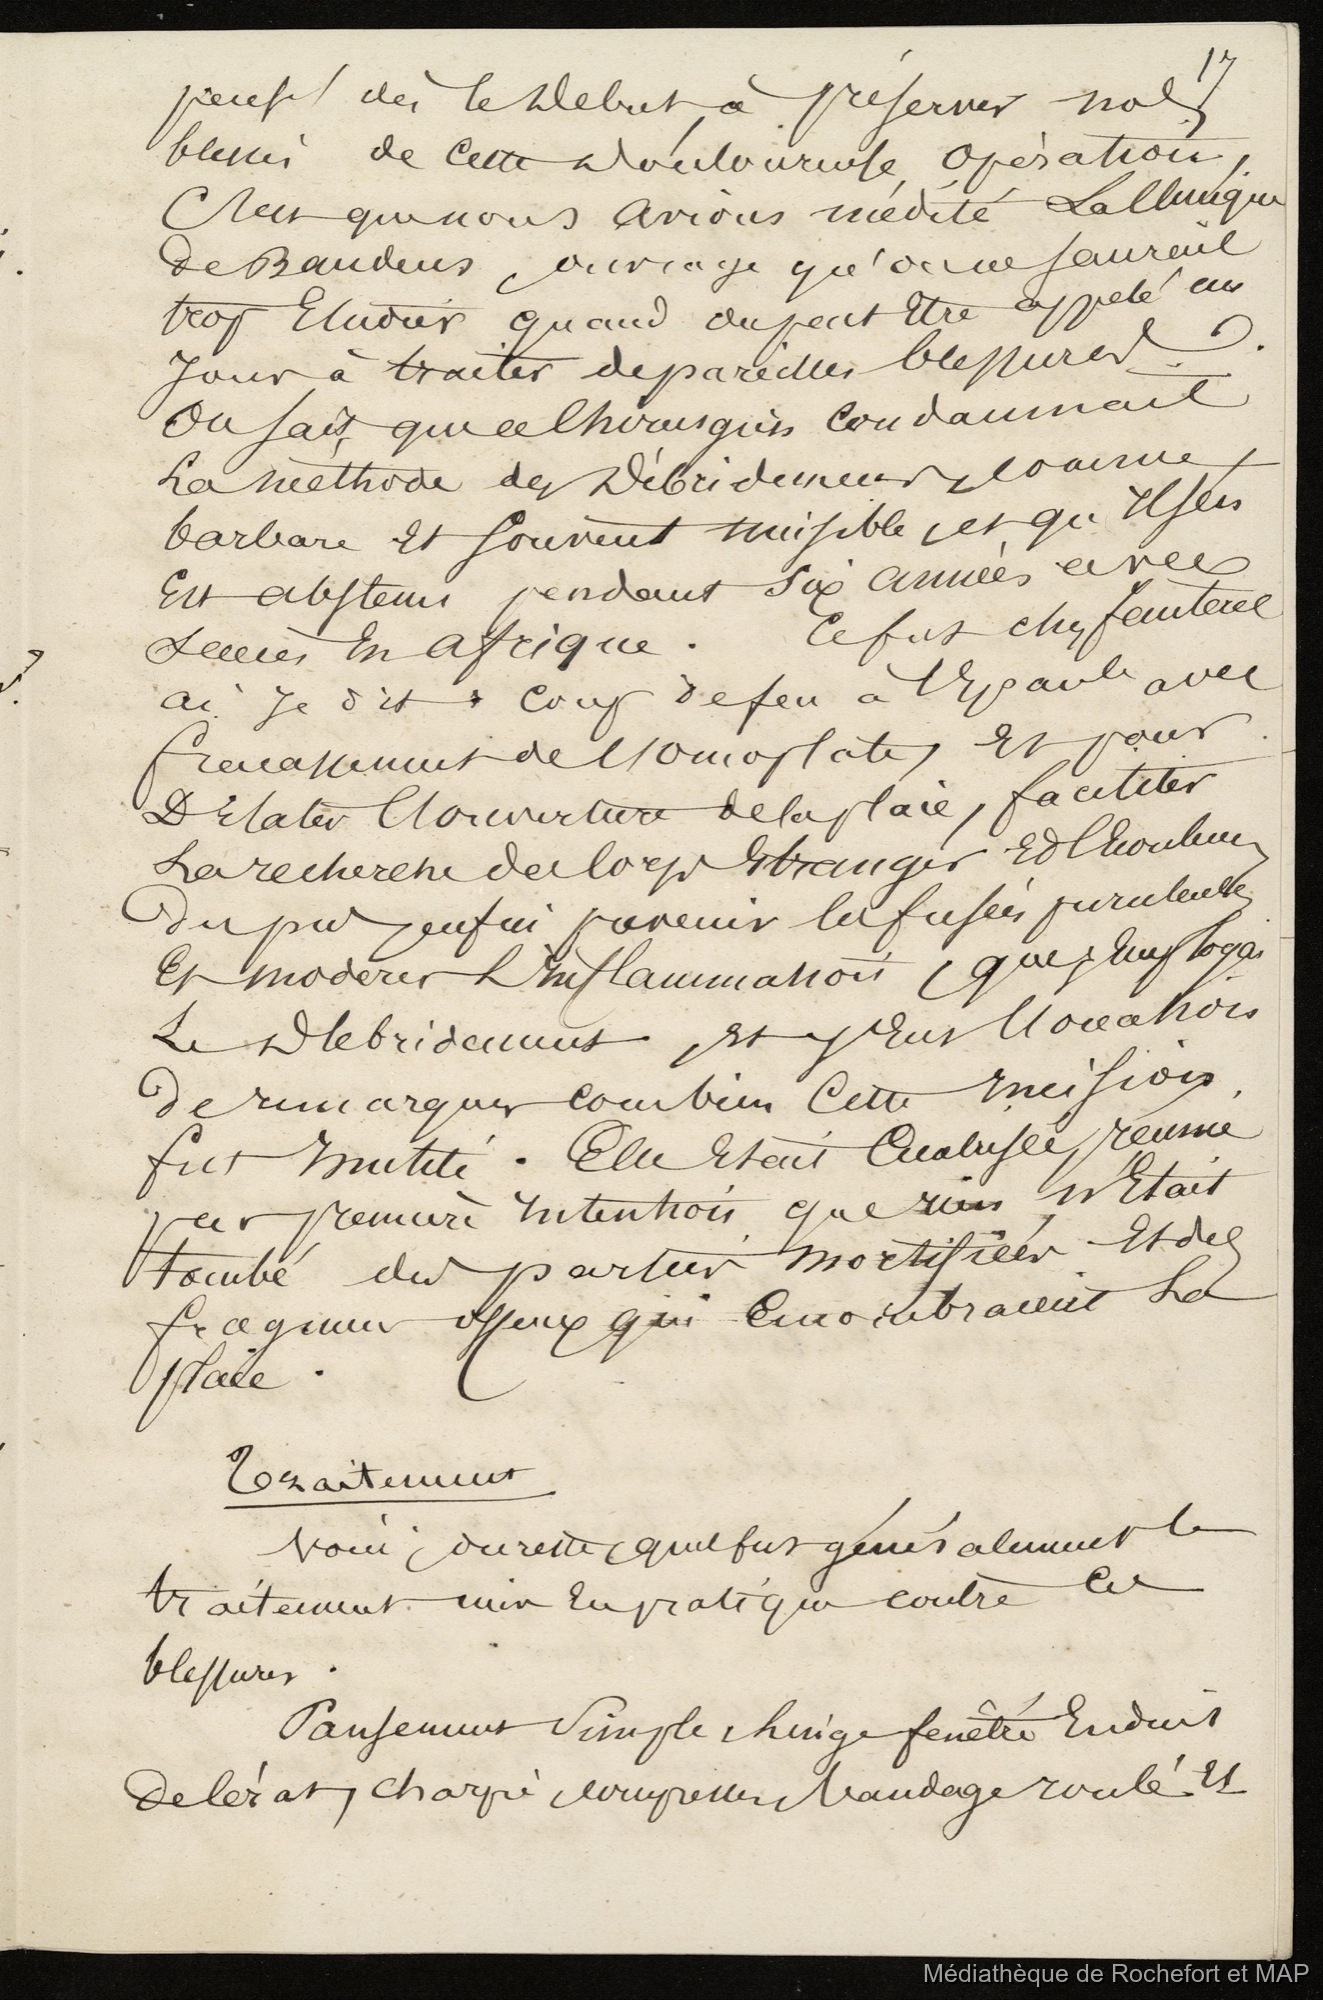 17
pensé dès le début à préserver nos
blessés de cette douloureuse opération,
C'est que nous avions médité La Clinique
de Baudens, ouvrage qu'on ne saurait
trop Etudier quand on peut Etre appelé un
Jour à traiter de pareilles blessures.
On sait que ce Chirurgien condamnait
La méthode des Débridements, comme
barbare Et souvent nuisible, et qu'Il s'en
Est abstenu pendant six années avec
succès En Afrique. Ce fut chez Jeanterel
ai Je dit, coup de feu à l'Epaule avec
fracassement de l'omoplate, Et pour
Dilater l'ouverture de la plaie, faciliter
La recherche des Corps Etrangers Et l'Ecoulement
du pus, enfin prévenir les fusées purulentes
Et modérer L'Inflammation, que j'Employai
Le Débridement, Et j'Eus l'occasion
de remarquer combien Cette Incision
fut Inutile. Elle Etait Cicatrisée, réunie
par première Intention que rien n'Etait
tombé des parties mortifiées Et des
fragments osseux qui Encombraient La
plaie.
Traitement
Voici, du reste, quel fut généralement le
traitement mis En pratique contre ces
blessures.
Pansement Simple, Linge fenêtré Enduit
de Cérat, charpie, compresses, Bandage roulé Et
Médiathèque de Rochefort et MAP